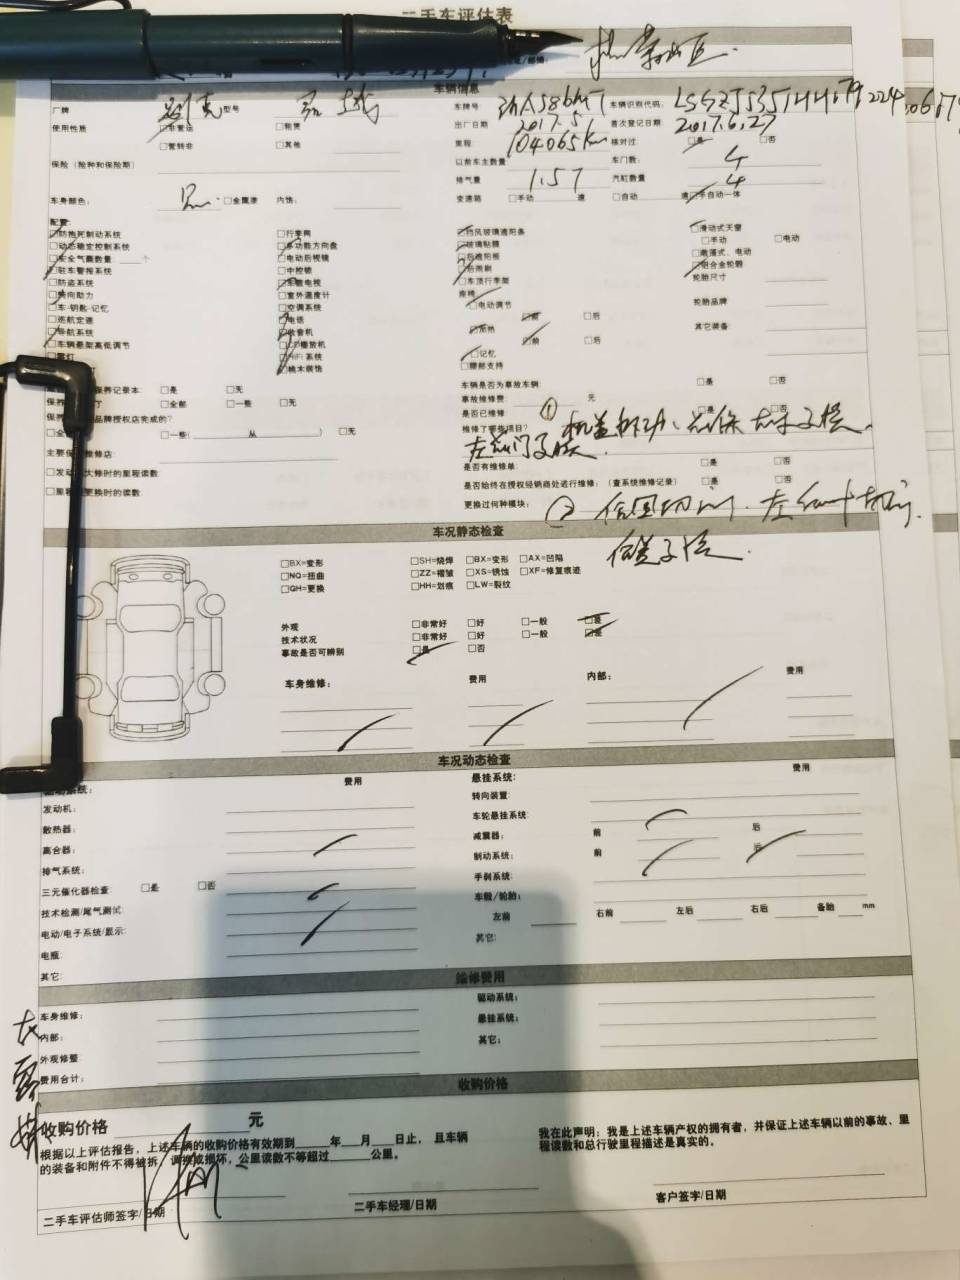 二手车评估表
车辆信息
厂牌 别克 型号
车牌号 车辆识别代码:
使用性质 □非营运 □租赁
出厂日期 2017.5 首次登记日期 2017.6.27
□营转非 □其他
里程 104065km 核对过: □是 □否
保险（险种和保险期）
以前车主数量 车门数: 4
排气量 1.5T 汽缸数量 4
车身颜色: □金属漆 内饰:
变速箱 □手动 速 □自动 速 □手自动一体
配置:
□防抱死制动系统 □行李网 □挡风玻璃遮阳条 □滑动式天窗
□动态稳定控制系统 □多功能方向盘 □玻璃贴膜 □手动 □电动
□安全气囊数量 个 □电动后视镜 □后遮阳板 □敞篷式、电动
□驻车警报系统 □中控锁 □后雨刷 □铝合金轮毂
□防盗系统 □车载电视 □车顶行李架 轮胎尺寸
□转向助力 □室外温度计 座椅:
□车-钥匙-记忆 □空调系统 □电动调节 轮胎品牌
□巡航定速 □电话 □前 □后
□导航系统 □收音机 □加热 □前 □后 其它装备:
□车辆悬架高低调节 □CD播放机 □记忆
□雾灯 □WiFi系统 □腰部支持
□桃木装饰
保养记录本: □是 □无
车辆是否为事故车辆: □是 □否
□全部 □一些 □无
事故维修费: 元
品牌授权店完成的?
是否已维修: □是 □否
□一些( 从 ) □无
维修了哪些项目? ①
主要保 维修店:
是否有维修单: □是 □否
□发动 大修时的里程读数:
是否始终在授权经销商处进行维修:（查系统维修记录） □是 □否
□里程 更换时的读数:
更换过何种模块: ②
车况静态检查
□BX=变形 □SH=烧焊 □BX=变形 □AX=凹陷
□NQ=扭曲 □ZZ=褶皱 □XS=锈蚀 □XF=修复痕迹
□GH=更换 □HH=划痕 □LW=裂纹
外观 □非常好 □好 □一般 □差
技术状况 □非常好 □好 □一般 □差
事故是否可辨别 □是 □否
车身维修: 费用 内部: 费用
车况动态检查
费用 悬挂系统: 费用
发动机: 转向装置:
散热器: 车轮悬挂系统:
离合器: 减震器: 前 后
排气系统: 制动系统: 前 后
三元催化器检查: □是 □否 手刹系统:
技术检测/尾气测试: 车毂/轮胎:
电动/电子系统/显示: 左前 右前 左后 右后 备胎 mm
电瓶: 其它:
其它:
维修费用
车身维修: 驱动系统:
内部: 悬挂系统:
外观修整 其它:
费用合计:
收购价格
收购价格 元
根据以上评估报告，上述车辆的收购价格有效期到 年 月 日止，且车辆
的装备和附件不得被拆、调换或损坏，公里读数不等超过 公里。
我在此声明：我是上述车辆产权的拥有者，并保证上述车辆以前的事故，里
程读数和总行驶里程描述是真实的。
二手车评估师签字/日期 二手车经理/日期 客户签字/日期